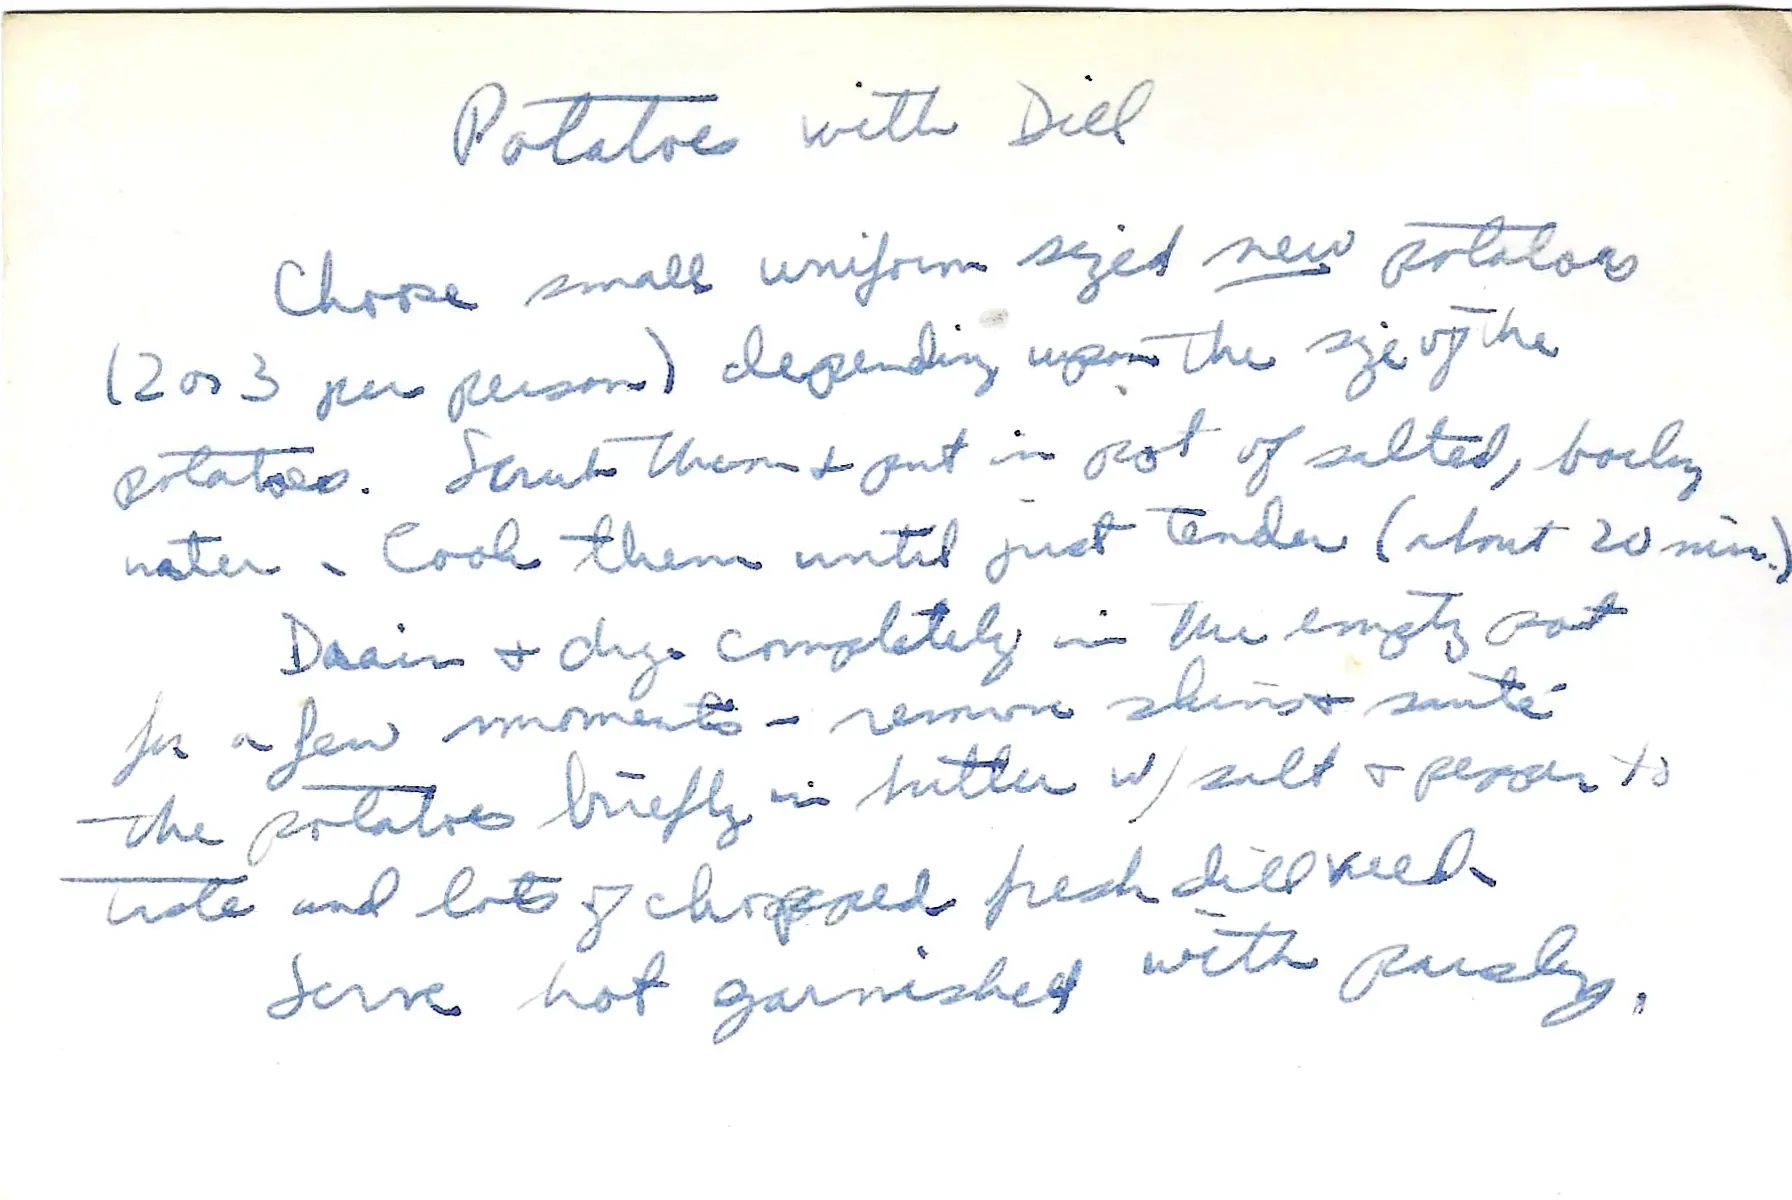 Potatoes with Dill
Choose small uniform sized new potatoes
(2 or 3 per person) depending upon the size of the
potatoes. Scrub them + put in pot of salted, boiling
water. Cook them until just tender (about 20 min.)
Drain + dry completely in the empty pot
for a few moments - remove skins + sauté
the potatoes briefly in butter w/ salt + pepper to
taste and lots of chopped fresh dill weed.
Serve hot garnished with parsley.